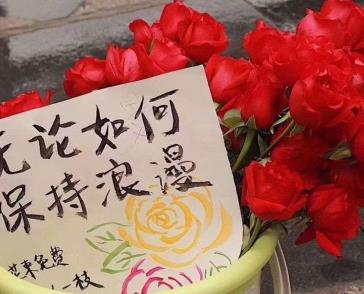 无论如何
保持浪漫
束免费
一枝